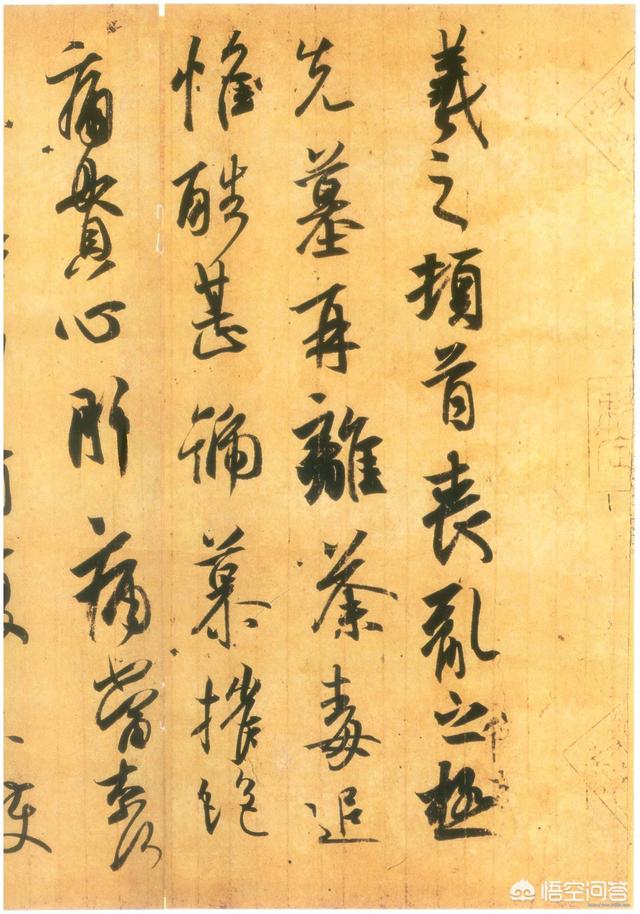 羲之頓首喪亂之極
先墓再離荼毒追
惟酷甚號慕摧絕
痛貫心肝痛當奈何
悟空问答